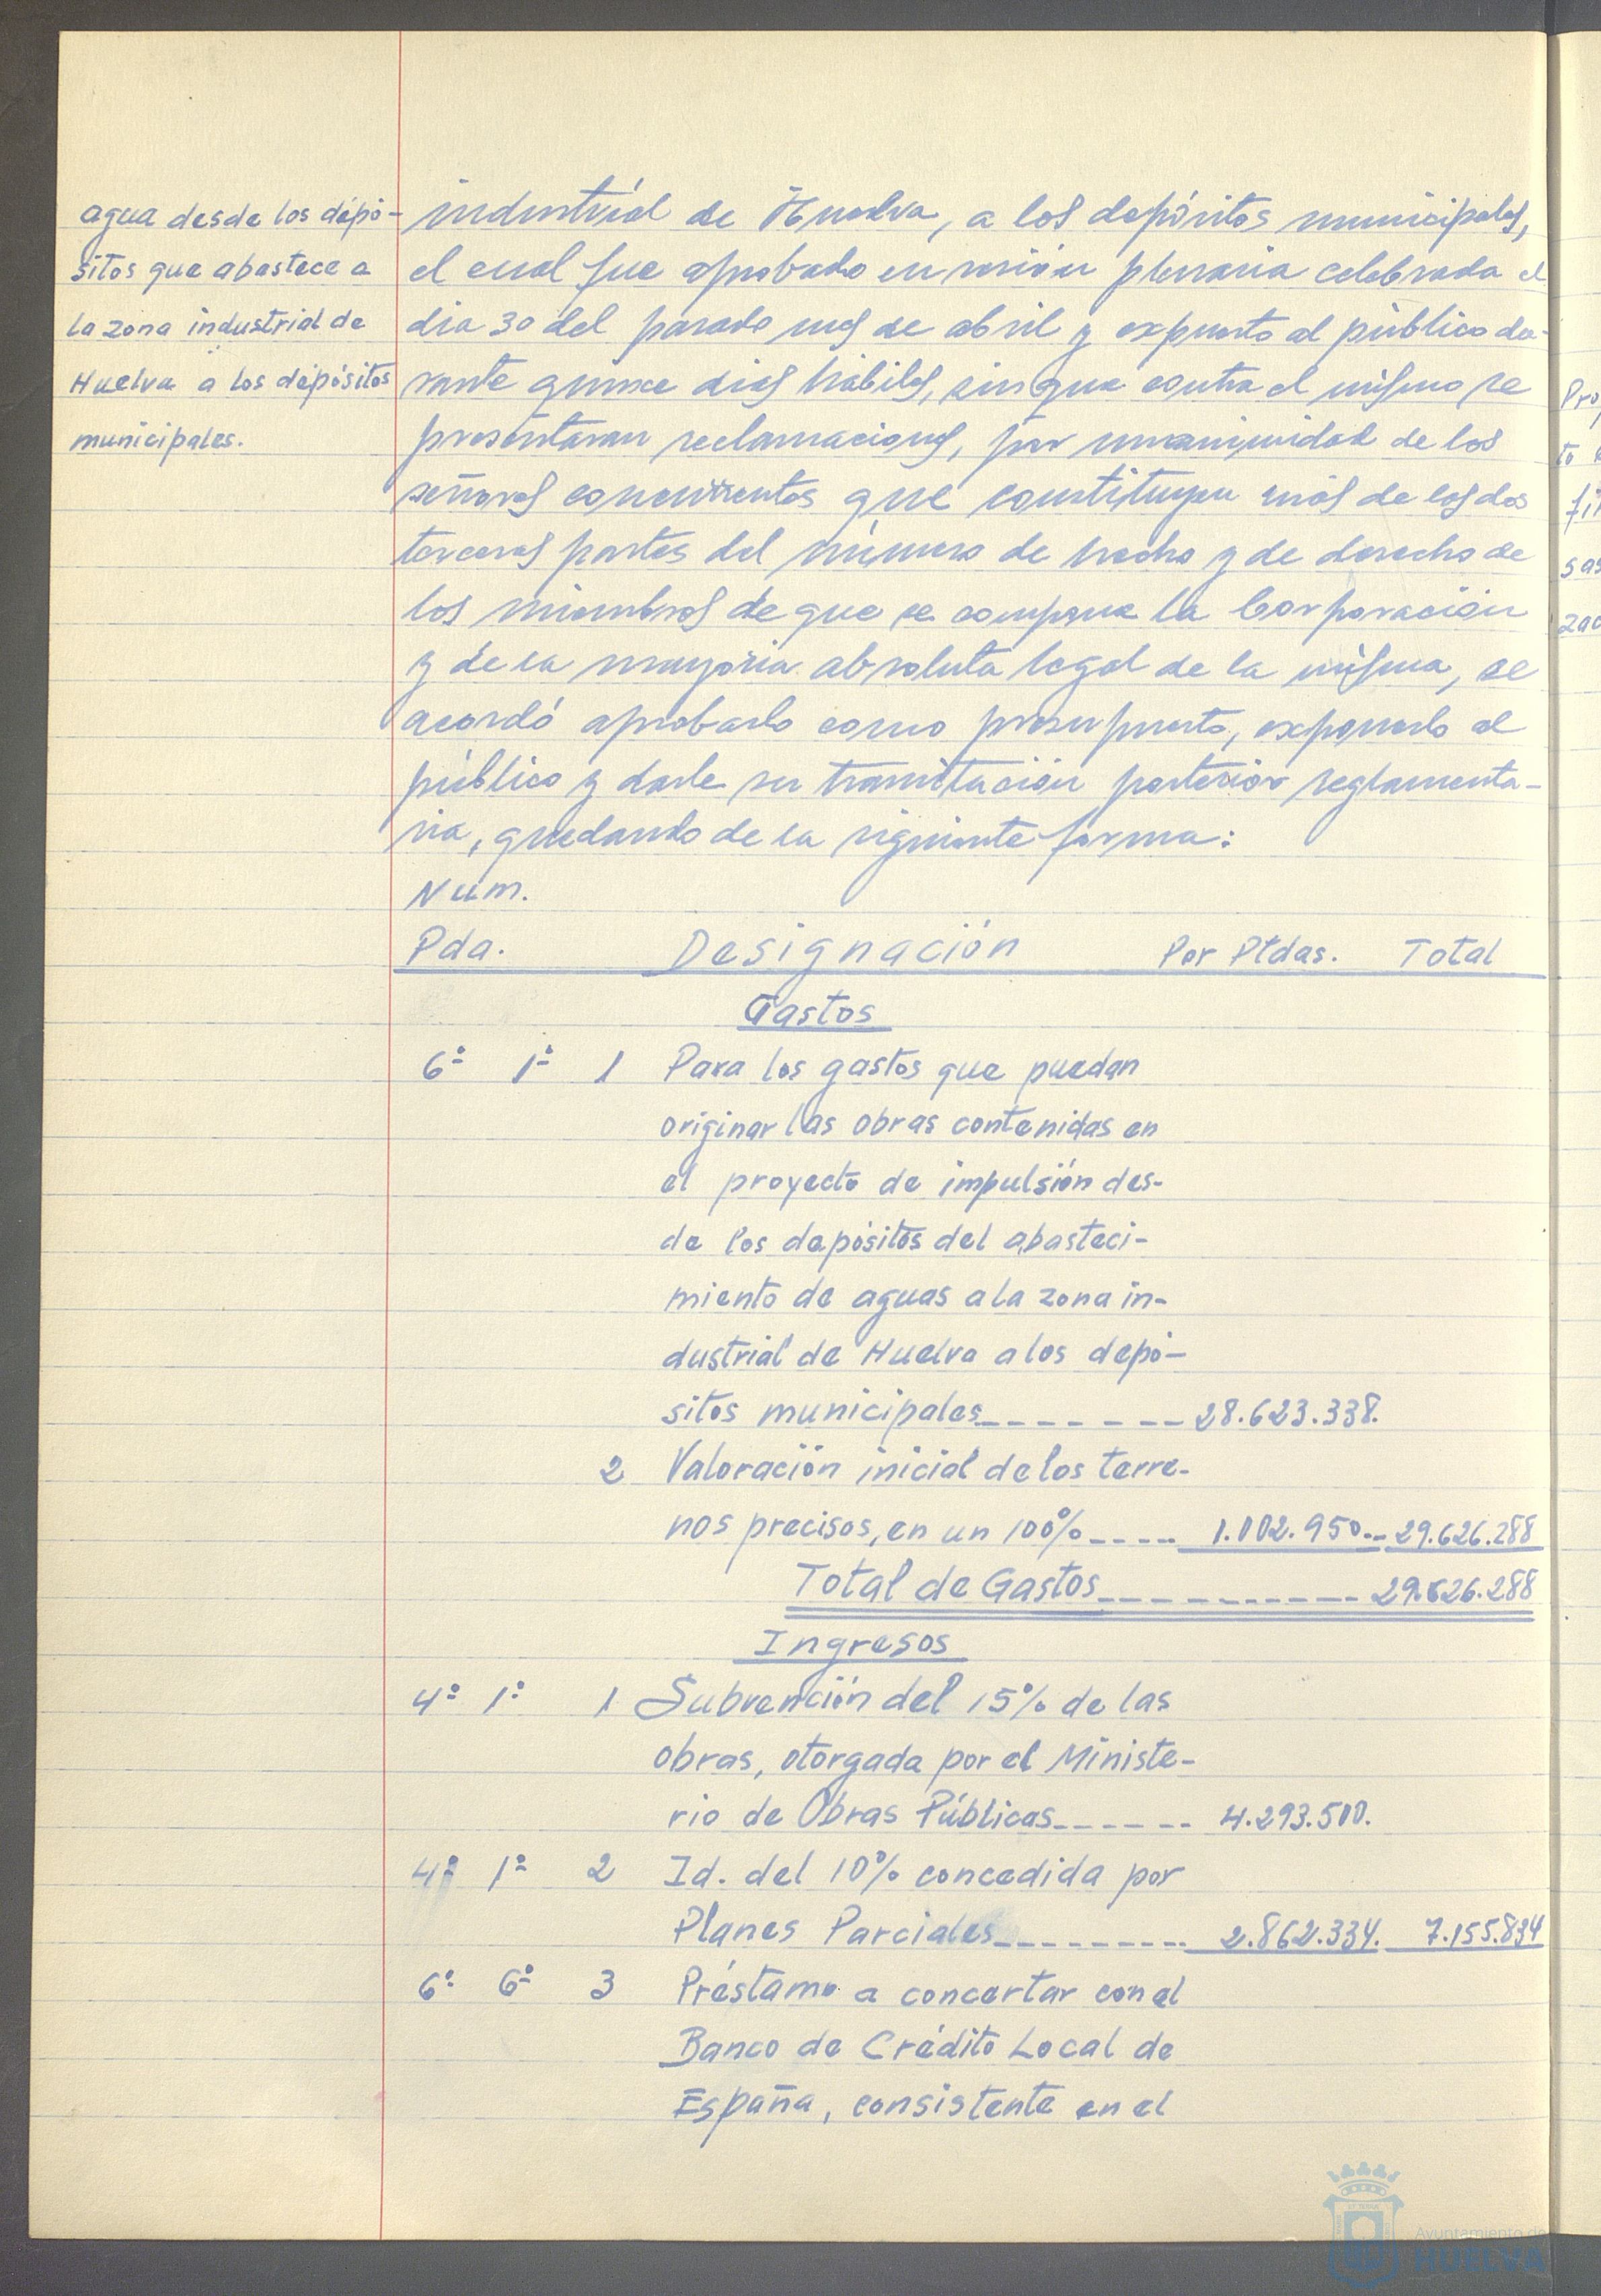 agua desde los depó-
sitos que abastece a
la zona industrial de
Huelva a los depósitos
municipales.
industrial de Huelva, a los depósitos municipales,
el cual fue aprobado en sesión plenaria celebrada el
dia 30 del pasado mes de abril y expuesto al público du-
rante quince dias hábiles, sin que contra el mismo se
presentaran reclamaciones, por unanimidad de los
señores concurrentes que constituyen más de las dos
terceras partes del número de hecho y de derecho de
los miembros de que se compone la Corporación
y de la mayoria absoluta legal de la misma, se
acordó aprobarlo como presupuesto, exponerlo al
público y darle su tramitación posterior reglamenta-
ria, quedando de la siguiente forma:
Num.
Pda. Designación Por Ptdas. Total
Gastos
6º 1º 1 Para los gastos que puedan
originar las obras contenidas en
el proyecto de impulsión des-
de los depósitos del abasteci-
miento de aguas a la zona in-
dustrial de Huelva a los depó-
sitos municipales 28.623.338.
2 Valoración inicial de los terre-
nos precisos, en un 100% 1.002.950.- 29.626.288
Total de Gastos 29.626.288
Ingresos
4º 1º 1 Subvención del 15% de las
obras, otorgada por el Ministe-
rio de Obras Públicas 4.293.500.
4º 1º 2 Id. del 10% concedida por
Planes Parciales 2.862.334. 7.155.834
6º 6º 3 Préstamo a concertar con el
Banco de Crédito Local de
España, consistente en el
Ayuntamiento de
HUELVA